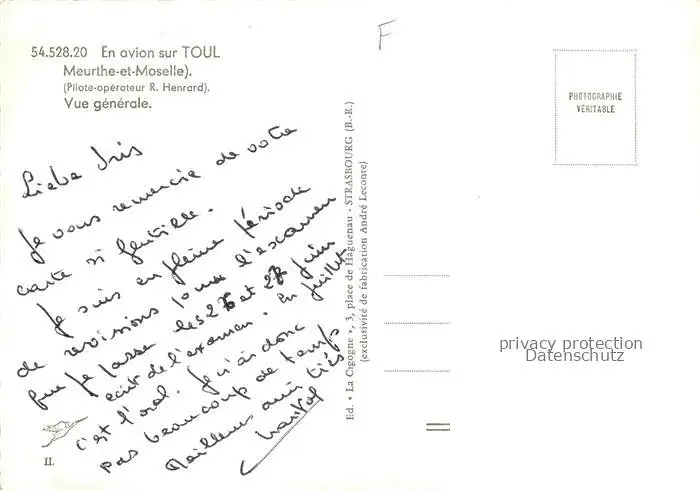 54.528.20 En avion sur TOUL
Meurthe-et-Moselle).
(Pilote-opérateur R. Henrard).
Vue générale.
F
PHOTOGRAPHIE
VÉRITABLE
Liebe Iris
Je vous remercie de votre
carte si gentille.
Je suis en pleine période
de revisions pour l'examen
que je passe les 26 et 27 Juin
écrit de l'examen. en Juillet
c'est l'oral. Je n'ai donc
pas beaucoup de temps
Meilleures amitiés
II.
Ed. "La Cigogne", 3, place de Haguenau - STRASBOURG (B.-R.)
(exclusivité de fabrication André Leconte)
privacy protection
Datenschutz